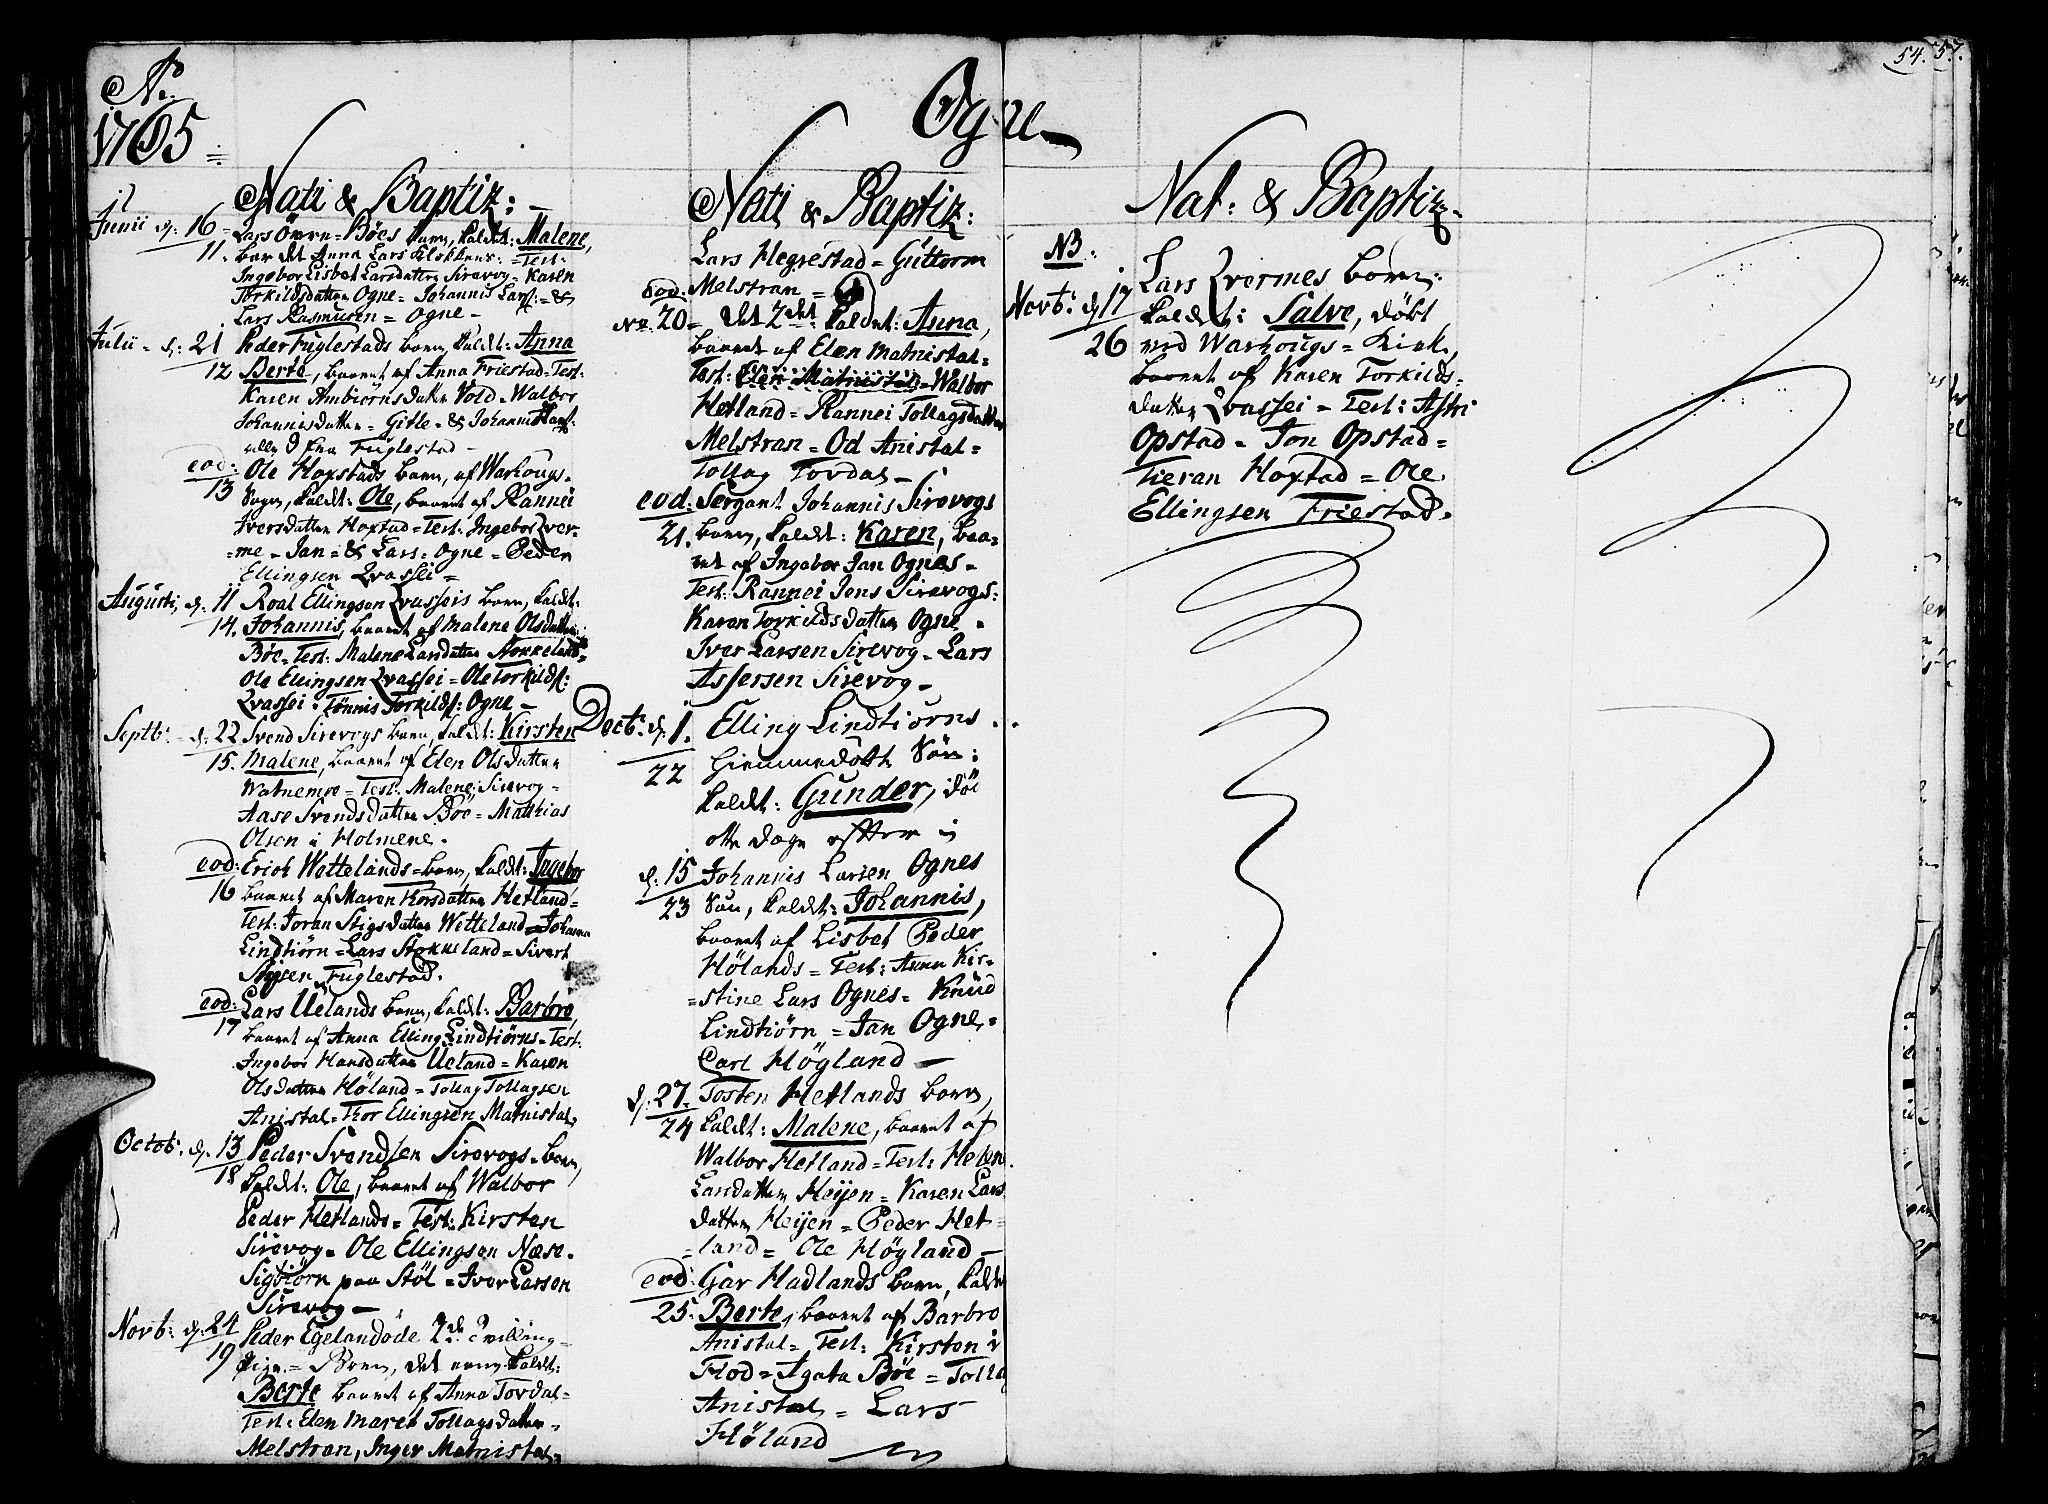 Ao
54. 57.
1765
Ogne
Nati & Baptiz:
Junii d: 16 Lars Övrn-Böes barn, kaldet: Malene,
11. bar det Anna Lars = Test:
Ingebor Lisbet Larsdatter Sirevog = Karen
Torkildsdatter Ogne = Johannis Lars: = &
Lars Rasmusen = Ogne
Julii d: 21 Peder Fuglestads barn, kaldt: Anna
12 Berte, baaret af Anna Friestad = Test:
Karen Ambiörnsdatter Vold = Walbor
Johannisdatter = Gitle = & Johannis
alle 3 fra Fuglestad
eod: Ole Hoxstads barn, af Warhougs-
13 Sogn, kaldt: Ole, baaret af Rannei
Iversdatter Hoxtad = Test: Ingebor Qver-
=me = Jan = & Lars: Ogne = Peder
Ellingsen Qvassei =
Augusti, d: 11 Roal Ellingsen Qvasseis barn, kaldt:
14. Johannis, baaret af Malene Olsdatter
Böe = Test: Malene Larsdatter Stokkeland =
Ole Ellingsen Qvassei = Ole Torkilds:
Qvassei = Tönnis Torkilds: Ogne
Septb: d: 22 Svend Sirevogs barn, kaldt: Kirsten
15. Malene, baaret af Elen Olsdatter
Watnemoe = Test: Malene Sirevog =
Aase Svendsdatter Böe = Matthias
Olsen i Holmene.
eod: Erich Wettelands = barn, kaldt: Ingebor
16 baaret af Maren Korsdatter Hetland =
Test: Joran Stigsdatter Wetteland = Johanna
Lindtiörn = Lars Stokkeland = Sivert
Stigsen Fuglestad.
eod: Lars Uelands barn, kaldt: Barbro,
17 baaret af Anna Elling Lindtiörns = Test:
Ingebor Hansdatter Ueland = Karen
Olsdatter Höland = Tollag Tollagsen
Anistal = Thor Ellingsen Matnistal,
Octob: d: 13 Peder Svendsen Sirevogs = barn,
18 kaldt: Ole, baaret af Walbor
Peder Hetlands = Test: Kirsten
Sirevog = Ole Ellingsen Næse =
Sigbiörn paa Stöl = Iver Larsen
Sirevog
Novb: d: 24 Peder Egelandöde 2de Tvilling-
19 Pige = Börn, det eene kaldt:
Berte baaret af Anna Tordal =
Test: Elen Maret Tollagsdatter =
Melstran, Inger Matnistal =
Nati & Baptiz:
Lars Hegrestad = Guttorm
Melstran =
eod: No: 20 = det 2det kaldet: Anna,
baaret af Elen Matnistal =
Test: Elen Matnistal = Walbor
Hetland = Rannei Tollagsdatter
Melstran = Od Anistal =
Tollag Tordal
eod: Sergant Johannis Sirevogs
21. barn, kaldt: Karen, baa-
ret af Ingebor Jan Ognes =
Test: Rannei Jons Sirevogs =
Karen Torkildsdatter Ogne =
Iver Larsen Sirevog = Lars
Assersen Sirevog
Decb: d: 1. Elling Lindtiörns
22 hiemmedöbt Sön:
kaldt: Gunder, döe
otte dage efter
d: 15 Johannis Larsen Ognes
23 Sön, kaldt: Johannis,
baaret af Lisbet Peder
Hölands = Test: Anna Kir-
=stine Lars Ognes = Knud
Lindtiörn = Jan Ogne =
Carl Högland
d: 27. Tosten Hetlands barn,
24 kaldt: Malene, baaret af
Walbor Hetland = Test: Helene
Larsdatter Heijen = Karen Lars
datter Heijen = Peder Het-
=land = Ole Högland
eod: Gar Hadlands barn, kaldt
25. Berte, baaret af Barbro
Anistal = Test: Kirsten i
Flod = Agata Böe = Tollag
Anistal = Lars
Höland
Nat: & Baptiz
NB:
Lars Qvermes barn:
Novb: d: 17 kaldet: Salve, döbt
26 ved Warhougs = Kirke,
baaret af Karen Torkilds-
datter Qvassei = Test: Astri
Opstad = Jon Opstad =
Tieran Hoxtad = Ole
Ellingsen Friestad.